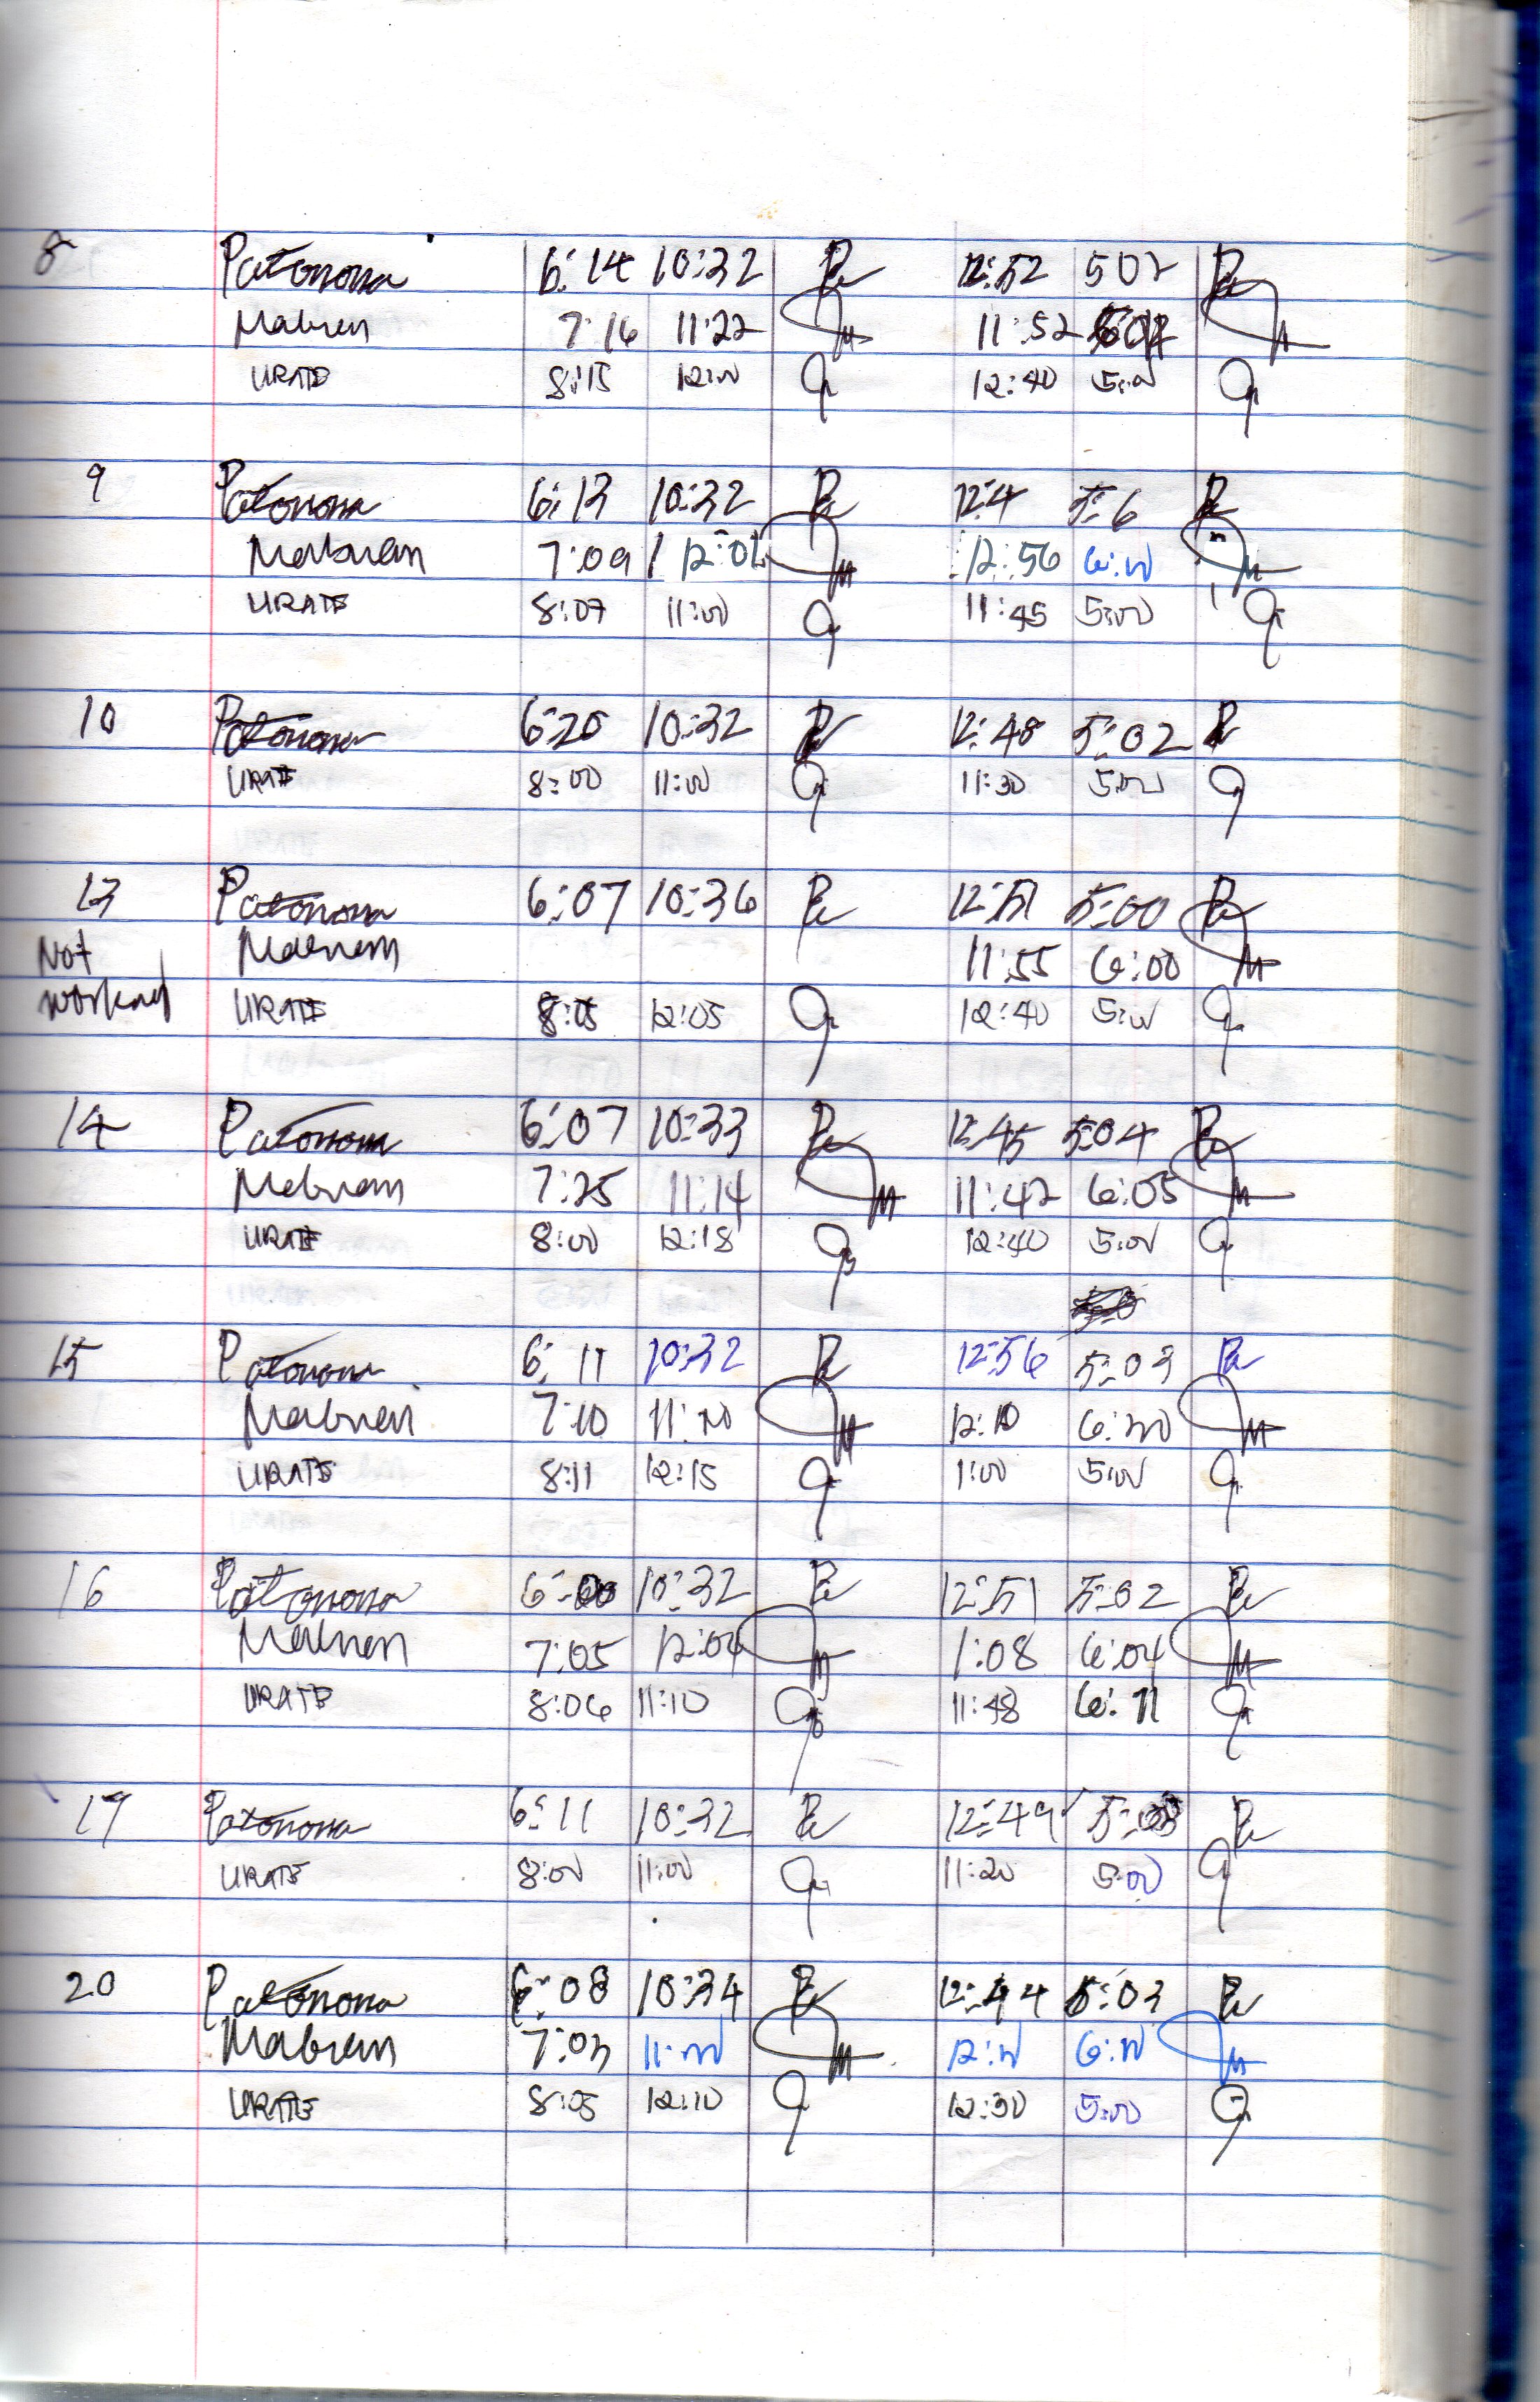 8 Patonona 6:14 10:32 12:52 502
Mabuen 7:16 11:22 11:52
URATE 8:15 12:00 12:40 5:00
9 Patonona 6:13 10:32 12:4 5:6
Mabuen 7:09 12:02 12:56 6:00
URATE 8:07 11:00 11:45 5:00
10 Patonona 6:20 10:32 12:48 5:02
URATE 8:00 11:00 11:30 5:00
13 Patonona 6:07 10:36 12:51 5:00
Not Mabuen 11:55 6:00
worked URATE 8:05 12:05 12:40 5:00
14 Patonona 6:07 10:33 12:45 5:04
Mabuen 7:25 11:14 11:42 6:05
URATE 8:00 12:18 12:40 5:00
15 Patonona 6:11 10:32 12:56 5:03
Mabuen 7:10 11:20 12:10 6:00
URATE 8:11 12:15 1:00 5:00
16 Patonona 6:00 10:32 12:51 5:02
Mabuen 7:05 12:04 1:08 6:04
URATE 8:06 11:10 11:48 6:11
17 Patonona 6:11 10:32 12:49
URATE 8:00 11:00 11:20 5:00
20 Patonona 6:08 10:34 12:44 5:03
Mabuen 7:03 11:00 12:00 6:00
URATE 8:05 12:10 12:30 5:00